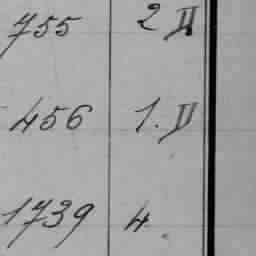 755 2 II
456 1. II
1739 4